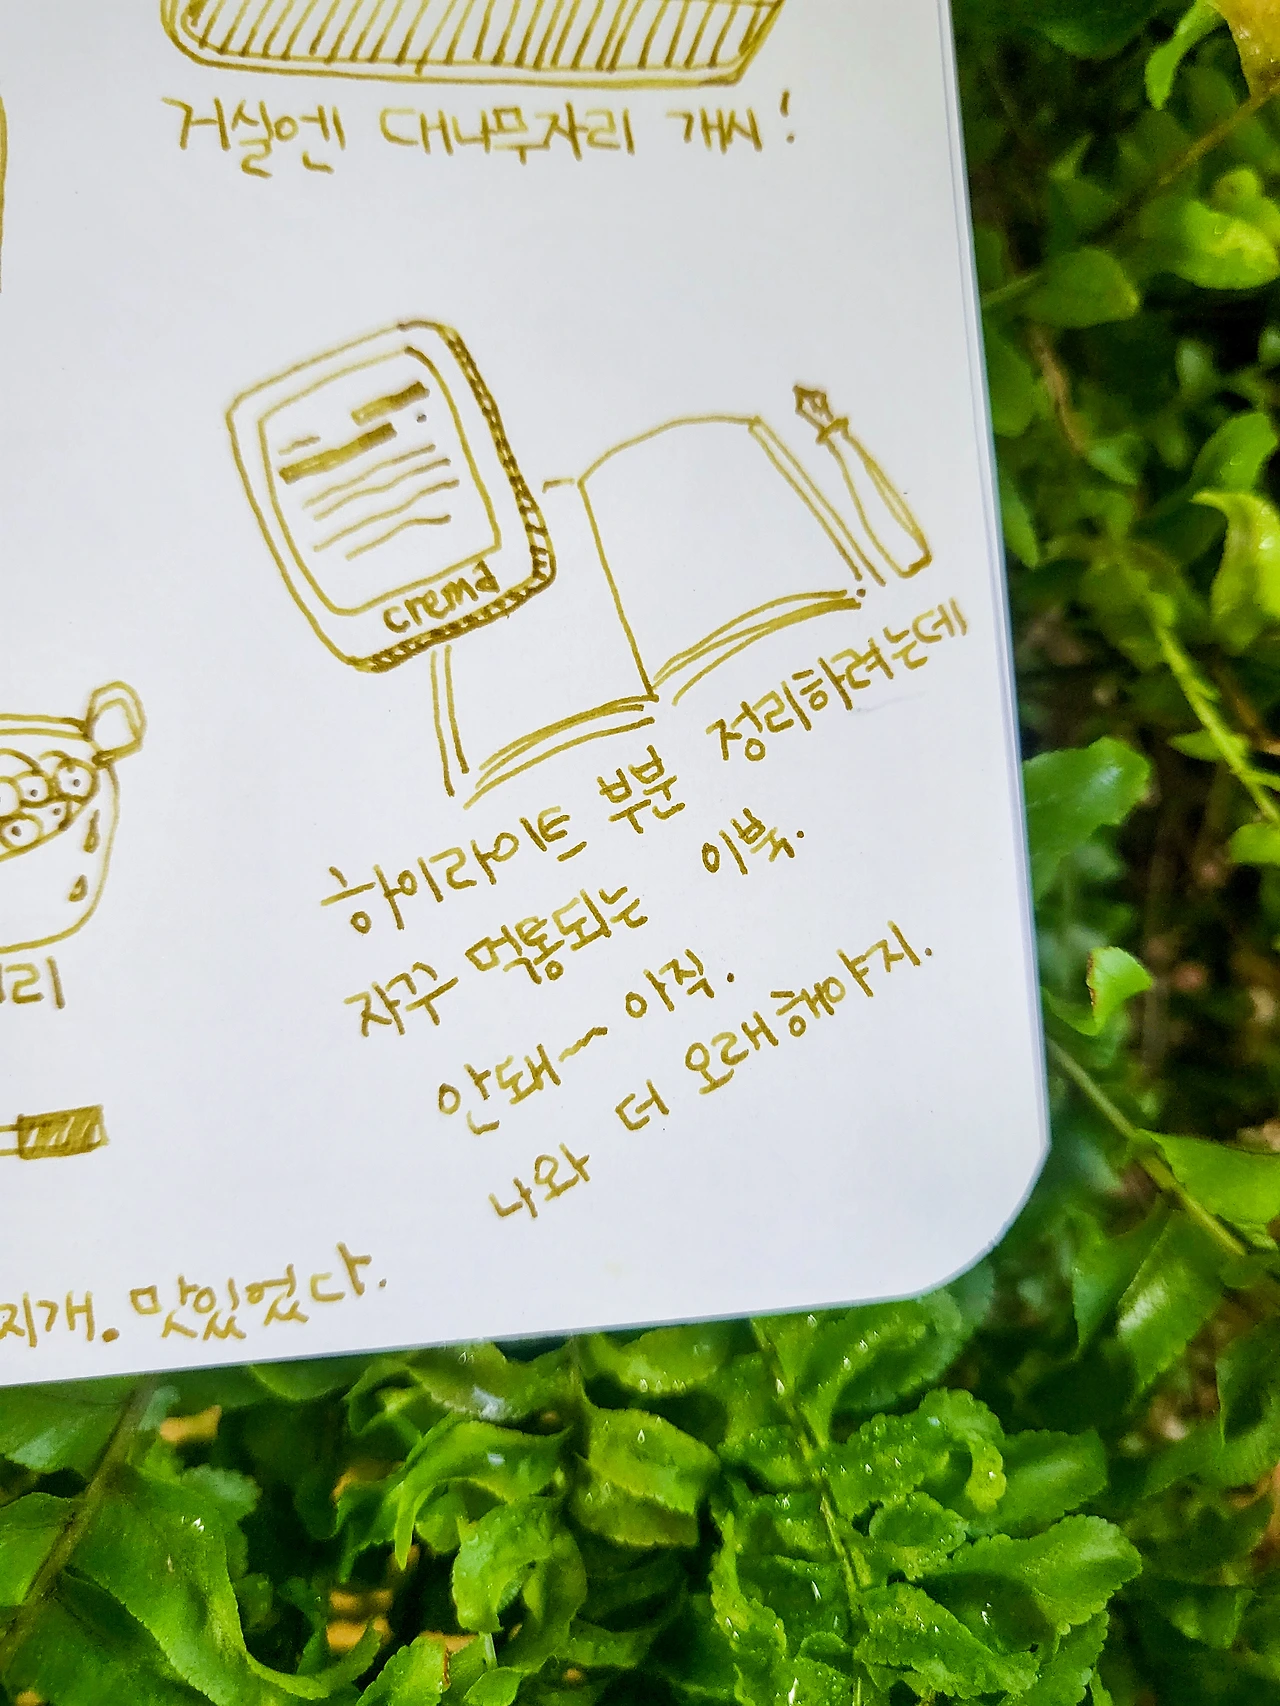 거실엔 대나무자리 개시!
crema
하이라이트 부분 정리하려는데
자꾸 먹통되는 이북.
안돼~ 아직.
나와 더 오래해야지.
리
지개. 맛있었다.